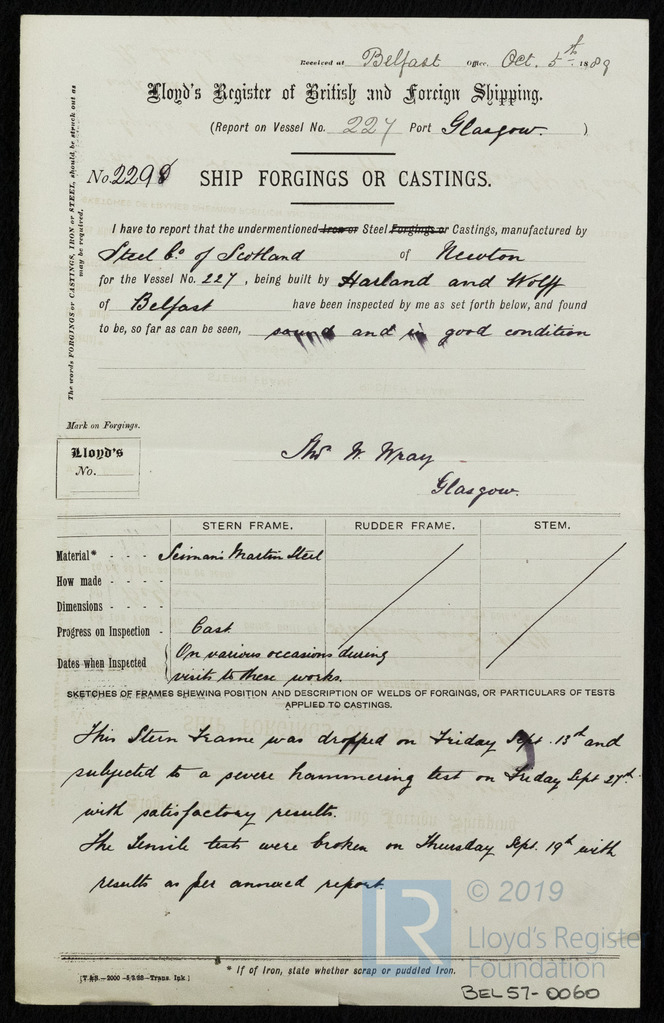 Received at Belfast Office, Oct. 5th 1889
Lloyd's Register of British and Foreign Shipping.
(Report on Vessel No. 227 Port Glasgow. )
No. 2298 SHIP FORGINGS OR CASTINGS.
The words FORGINGS or CASTINGS, IRON or STEEL, should be struck out as
may be required.
I have to report that the undermentioned Iron or Steel Forgings or Castings, manufactured by
Steel Co. of Scotland of Newton
for the Vessel No. 227, being built by Harland and Wolff
of Belfast have been inspected by me as set forth below, and found
to be, so far as can be seen, sound and in good condition
Mark on Forgings.
Lloyd's
No.
W. Wray
Glasgow.
STERN FRAME. RUDDER FRAME. STEM.
Material* - - - - Seimans Martin Steel
How made - - - -
Dimensions - - - -
Progress on Inspection - Cast
Dates when Inspected { On various occasions during
visits to these works.
SKETCHES OF FRAMES SHEWING POSITION AND DESCRIPTION OF WELDS OF FORGINGS, OR PARTICULARS OF TESTS
APPLIED TO CASTINGS.
This Stern Frame was dropped on Friday Sept. 13th and
subjected to a severe hammering test on Friday Sept 27th
with satisfactory results.
The Tensile tests were broken on Thursday Sept. 19th with
results as per annexed report.
* If of Iron, state whether scrap or puddled Iron.
2000 Trans. Ink.]
LR © 2019
Lloyd's Register
Foundation
BEL57-0060